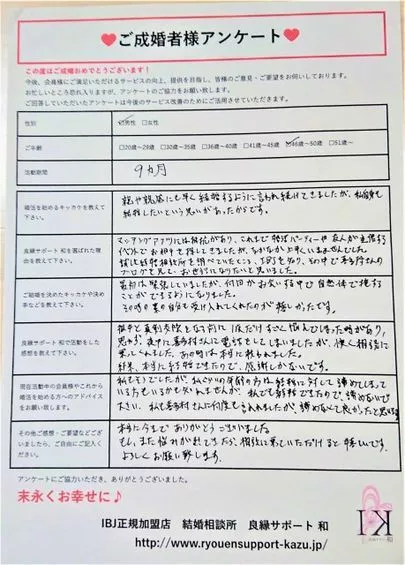 ♥ご成婚者様アンケート♥
この度はご成婚おめでとうございます！
今後、会員様にご満足いただけるサービスの向上、提供を目指し、皆様のご意見・ご要望をお伺いしております。
お忙しいところ恐れ入りますが、アンケートのご協力をお願い致します。
ご回答していただいたアンケートは今後のサービス改善のためにご活用させていただきます。
性別
☑男性 □女性
ご年齢
□20歳～29歳 □30歳～35歳 □36歳～40歳 □41歳～45歳 ☑46歳～50歳 □51歳～
活動期間
9カ月
婚活を始めるキッカケを教えて下さい。
親や親戚にも早く結婚するように言われ続けてきましたが、私自身も
結婚したいという思いがあったからです。
良縁サポート 和を選ばれた理由を教えて下さい。
マッチングアプリには抵抗があり、これまで婚活パーティーや友人が主催する
で お相手を探してきましたが、なかなか上手くいきませんでした。
結婚相談所を調べていたところ、IBJを知り、その中で
ブログを見て、お世話になりたいと思いました。
ご結婚を決めたキッカケや決め手などを教えて下さい。
最初は緊張していましたが、何回かお会いする中で自然体で接する
ことができるようになりました。
その時の素の自分を受け入れてくれたのが嬉しかったです。
良縁サポート 和で活動をした感想を教えて下さい。
相手と真剣交際になる前に1度だけすごく悩んでしまった時があり、
夜中に さんに電話をしてしまいましたが、快く相談に
乗ってくれました。あの時は本当に救われました。
結果、本当に結婚できたので、感謝しかないです。
現在活動中の会員様やこれから婚活を始める方へのアドバイスをお願い致します。
私もそうでしたが、私ぐらいの年齢の方は結婚に対して諦めてしまって
いる方もいるかも知れませんが、私でも結婚できたので、諦めないで下
さい。私も さんに何度も言われましたが、諦めなくて良かったと思います
その他ご感想・ご要望などございましたら、ご自由にご記入ください。
本当に今まであリがとうございました。
もし、また悩みがでてきたら、相談に乗っていただけると嬉しいです。
よろしくお願い致します。
アンケートにご協力いただき、ありがとうございました。
末永くお幸せに♪
IBJ正規加盟店 結婚相談所 良縁サポート 和
http://www.ryouensupport-kazu.jp/